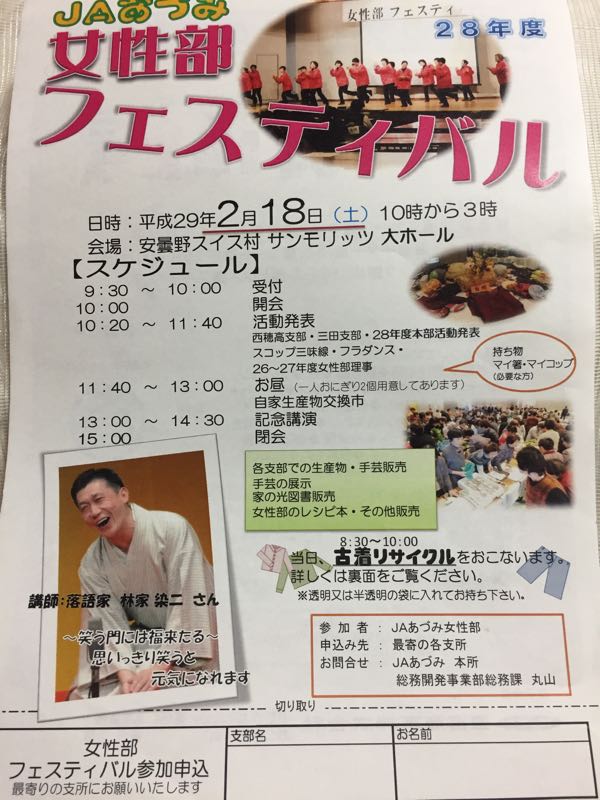 JAあづみ
女性部
フェスティバル
女性部 フェスティ
28年度
日時：平成29年2月18日（土）10時から3時
会場：安曇野スイス村 サンモリッツ 大ホール
【スケジュール】
9：30 ～ 10：00 受付
10：00 開会
10：20 ～ 11：40 活動発表
西穂高支部・三田支部・28年度本部活動発表
スコップ三味線・フラダンス・
26～27年度女性部理事
11：40 ～ 13：00 お昼（一人おにぎり2個用意してあります）
自家生産物交換市
13：00 ～ 14：30 記念講演
15：00 閉会
持ち物
マイ箸・マイコップ
（必要な方）
各支部での生産物・手芸販売
手芸の展示
家の光図書販売
女性部のレシピ本・その他販売
8:30～10:00
当日、古着リサイクルをおこないます。
詳しくは裏面をご覧ください。
※透明又は半透明の袋に入れてお持ち下さい。
講師：落語家 林家 染二 さん
～笑う門には福来たる～
思いっきり笑うと
元気になれます
参加者：JAあづみ女性部
申込み先：最寄の各支所
お問合せ：JAあづみ 本所
総務開発事業部総務課 丸山
切り取り
女性部
フェスティバル参加申込
最寄りの支所にお願いいたします
支部名
お名前